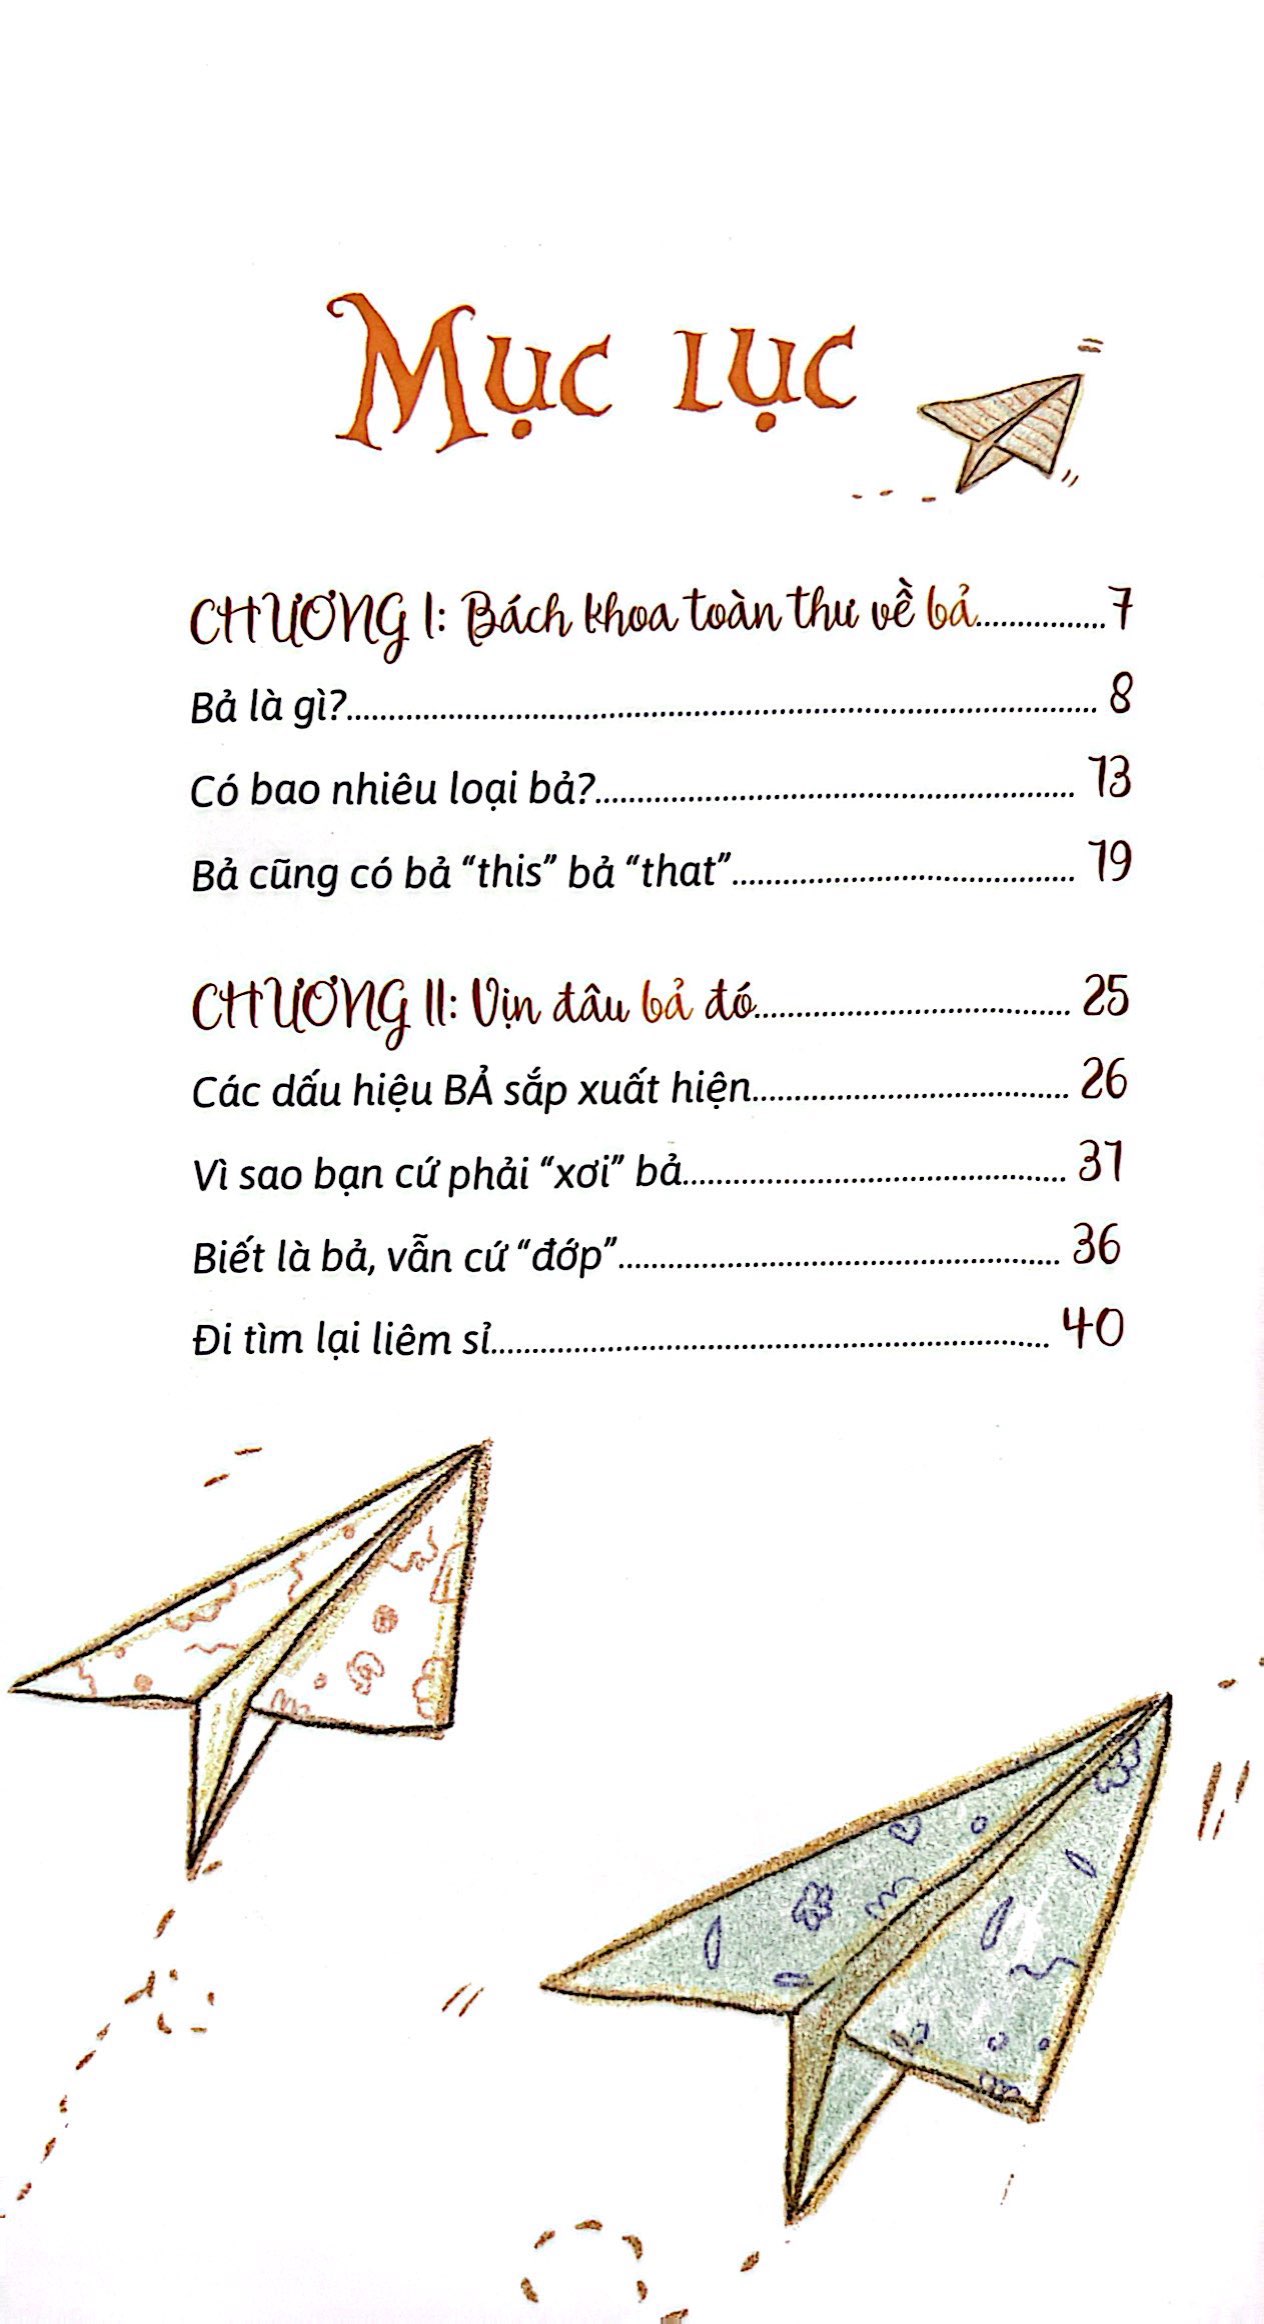 Mục lục
CHƯƠNG I: Bách khoa toàn thư về bả................7
Bả là gì?................ 8
Có bao nhiêu loại bả?................ 13
Bả cũng có bả “this” bả “that”................ 19
CHƯƠNG II: Vịn đâu bả đó................ 25
Các dấu hiệu BẢ sắp xuất hiện................ 26
Vì sao bạn cứ phải “xơi” bả................ 31
Biết là bả, vẫn cứ “đớp”................ 36
Đi tìm lại liêm sỉ................ 40